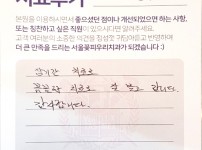 치료후기
본원을 이용하시면서 좋으셨던 점이나 개선되었으면 하는 사항,
또는 칭찬하고 싶은 직원이 있으시다면 알려주세요.
고객 여러분의 소중한 의견을 정성껏 귀담아듣고 반영하여
더 큰 만족을 드리는 서울꽃피우리치과가 되겠습니다 :)
장기간 치료로
꼼꼼한 치료 잘 받고 갑니다.
감사합니다.